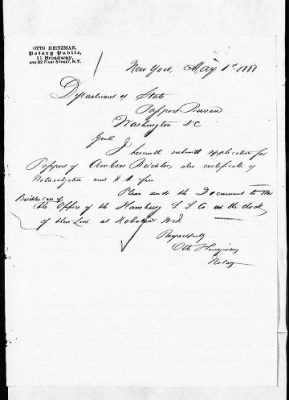 OTTO HEINZMAN,
Notary Public,
11 Broadway,
New York, May 1st 1887
Department of State
Passport Bureau
Washington D.C.
Gentl
I herewith submit application for
Passport of Ambros Büchler, also certificate of
Naturalization and
Please send the Document to Mr
Büchler care of
the Office of the Hamburg S S Co at the dock
of this Line at Hoboken
Respectfully
Otto Heinzman
Notary